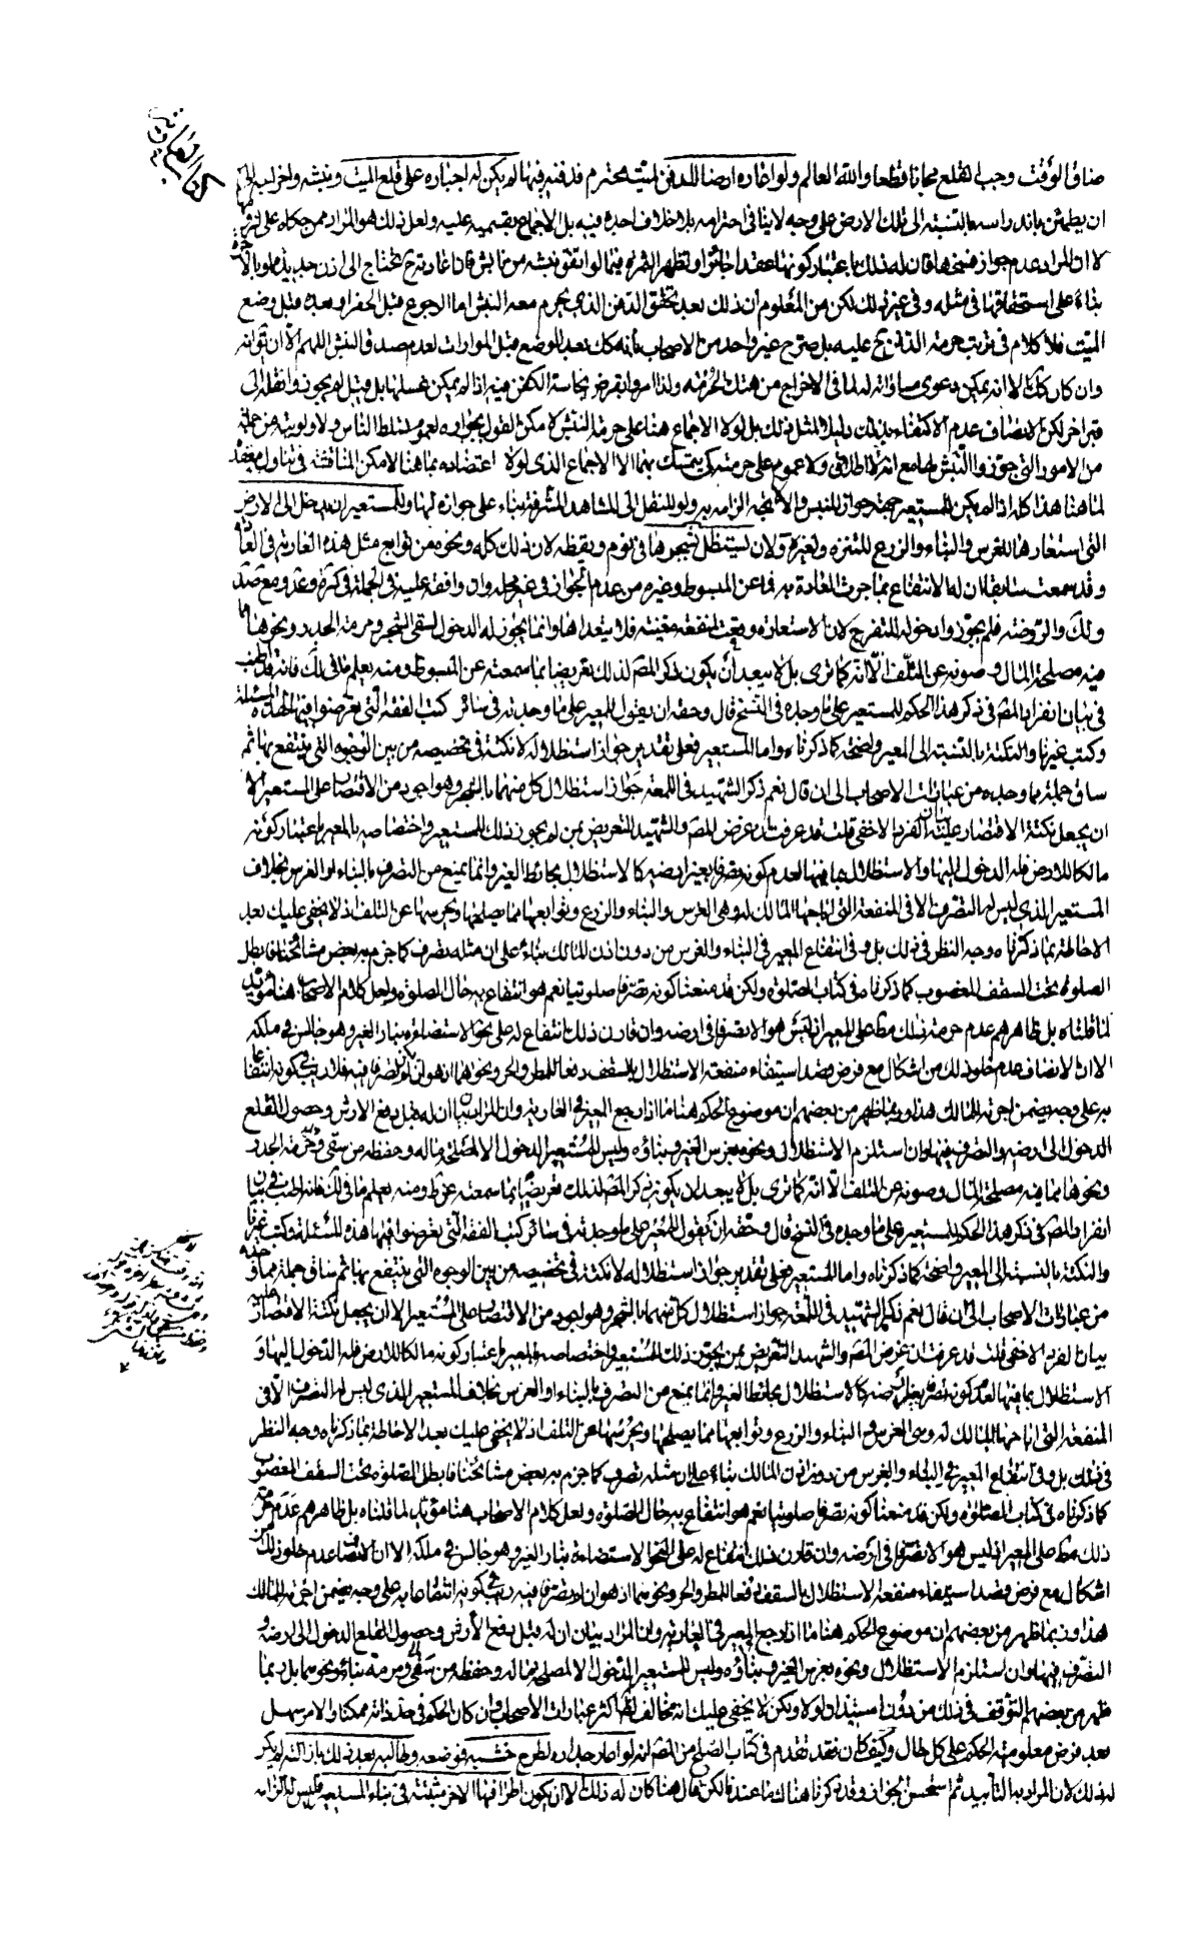 كتاب العارية
ضاق الوقت وجب القلع مجانا قطعا والله العالم ولو اعاره ارضا للدفن لميت محترم فدفنه فيها لم يكن له اجباره على قلع الميت ونبشه واخراجه الى
ان يطمئن باندراسه بالنسبة الى تلك الارض على وجه لا ينافي احترامه بلا خلاف اجده فيه بل الاجماع بقسميه عليه ولعل ذلك هو المراد ممن حكاه على لزومها
لا ان المراد عدم جواز فسخها فان له ذلك باعتبار كونها عقدا جائزا وتظهر الثمرة فيما لو اتفق نبشه من نابش فان اعادته ح تحتاج الى اذن جديد
بناء على استحقاقها في مثله وفي غير ذلك لكن من المعلوم ان ذلك بعد تحقق الدفن الذي يحرم معه النبش اما الرجوع قبل الحفر او بعده قبل وضع
الميت فلا كلام في ترتب حرمة الدفن ح عليه بل صرح غير واحد من الاصحاب بانه كك بعد الوضع قبل المواراة لعدم صدق النبش اللهم الا ان
وان كان كك الا انه يمكن دعوى مساواته له لما في الاخراج من هتك الحرمة ولذا امروا بقرض نجاسة الكفن فيه اذا لم يمكن غسلها بل قيل لم يجوزوا نقله الى
قبر اخر لكن الانصاف عدم الاكتفاء بذلك دليلا لمثل ذلك بل لولا الاجماع هنا على حرمة النبش لامكن القول بجوازه لعموم تسلط الناس ولاولويته من جملة
من الامور التي جوزوا النبش لها مع انه لا اطلاق ولا عموم على حرمته كي يتمسك بهما الا الاجماع الذي لولا اعتضاده بما هنا لامكن المناقشة في تناول معقده
لما هنا هذا كله اذا لم يكن للمستعير جهة جواز للنبش والا اتجه الزامه به ولو للنقل الى المشاهد المشرفة بناء على جوازه لها وللمستعير ان يدخل الى الارض
التي استعارها للغرس والبناء والزرع للتنزه ولغيره ولان يستظل بشجرها في نوم ويقظة لان ذلك كله ونحوه من توابع مثل هذه العارية في العادة
وقد سمعت سابقا ان له الانتفاع بما جرت العادة به فما عن المبسوط وغيره من عدم الجواز في غير محله وان وافقه عليه في الجملة في كره وعد ومع صد
ولك والروضة فلم يجوزوا دخوله للتفرج لان الاستعارة وقعت لمنفعة معينة فلا يتعداها وانما يجوز له الدخول لسقي الشجر ومرمة الجدر ونحوهما مما
فيه مصلحة المال وصونه عن التلف الا انه كما ترى بل لا يبعد ان يكون ذكر المص لذلك تعريضا بما سمعته عن المبسوط ومنه يعلم ما في لك فانه قد اطنب
في بيان انفراد المص في ذكر هذا الحكم للمستعير على ما وجده في النسخ قال وحقه ان يقول للمعير على ما وجدته في سائر كتب الفقه التي تعرضوا فيها لهذه المسئلة
وكتب غيرها والنكتة بالنسبة الى المعير واضحة كما ذكرناه واما المستعير فعلى تقدير جواز استظلاله لا نكتة في تخصيصه من بين الوجوه التي ينتفع بها ثم
ساق جملة مما وجده من عبارات الاصحاب الى ان قال نعم ذكر الشهيد في اللمعة جواز استظلال كل منهما بالشجر وهو اجود من الاقتصار على المستعير الا
ان يجعل نكتة الاقتصار عليه بيان الفرد الاخفى قلت قد عرفت ان غرض المص والشهيد التعريض بمن لم يجوز ذلك للمستعير واختصاصه بالمعير باعتبار كونه
مالكا للارض فله الدخول اليها والاستظلال بما فيها لعدم كونه تصرفا بغير ارضه كالاستظلال بحائط الغير وانما يمنع من التصرف بالبناء او الغرس بخلاف
المستعير الذي ليس له التصرف الا في المنفعة التي اباحها المالك له وهى الغرس والبناء والزرع وتوابعها مما يصلحها ويحرسها عن التلف اذ لا يخفى عليك بعد
الاحاطة بما ذكرناه وجه النظر في ذلك بل وفي انتفاع المعير في البناء والغرس من دون اذن المالك بناء على ان مثله تصرف كما جزم به بعض مشائخنا فابطل
الصلوة تحت السقف المغصوب كما ذكرناه في كتاب الصلوة ولكن قد منعنا كونه تصرفا صلوتيا نعم هو انتفاع به حال الصلوة ولعل كلام الاصحاب هنا مؤيد
لما قلناه بل ظاهرهم عدم حرمة ذلك مط على المعير اذ ليس هو الا تصرفا في ارضه وان قارن ذلك انتفاع له على نحو الاستضاءة بنار الغير وهو جالس في ملكه
الا ان الانصاف عدم خلو ذلك من اشكال مع فرض قصد استيفاء منفعة الاستظلال بالسقف دفعا للمطر والحر ونحوهما اذ هو ان لم يكن تصرفا فيه فلا ريب في كونه انتفاعا
به على وجه يضمن اجرته للمالك هذا وربما ظهر من بعضهم ان موضوع الحكم هنا ما اذا رجع المعير في العارية وان المراد بيان ان له قبل دفع الارش وحصول القلع
الدخول الى ارضه والتصرف فيها وان استلزم الاستظلال ونحوه بغرس الغير وبنائه وليس للمستعير الدخول الا لمصلحة ماله وحفظه من سقي ومرمة الجدر
ونحوها مما فيه مصلحة المال وصونه عن التلف الا انه كما ترى بل لا يبعد ان يكون ذكر المص لذلك تعريضا بما سمعته عن ط ومنه يعلم ما في لك فانه اطنب في بيان
انفراد المص في ذكر هذا الحكم للمستعير على ما وجده في النسخ قال وحقه ان يقول للمعير على ما وجدته في سائر كتب الفقه التي تعرضوا فيها هذه المسئلة وكتب غيرها
والنكتة بالنسبة الى المعير واضحة كما ذكرناه واما المستعير فعلى تقدير جواز استظلاله لا نكتة في تخصيصه من بين الوجوه التي ينتفع بها ثم ساق جملة مما وجده
من عبارات الاصحاب الى ان قال نعم ذكر الشهيد في اللمعة جواز استظلال كل منهما بالشجر وهو اجود من الاقتصار على المستعير الا ان يجعل نكتة الاقتصار عليه
بيان الفرد الاخفى قلت قد عرفت ان غرض المص والشهيد التعريض بمن لم يجوز ذلك للمستعير واختصاصه بالمعير باعتبار كونه مالكا للارض فله الدخول اليها و
الاستظلال بما فيها لعدم كونه تصرفا بغير ارضه كالاستظلال بحائط الغير وانما يمنع من التصرف بالبناء او الغرس بخلاف المستعير الذي ليس له التصرف الا في
المنفعة التي اباحها المالك له وهى الغرس والبناء والزرع وتوابعها مما يصلحها ويحرسها عن التلف اذ لا يخفى عليك بعد الاحاطة بما ذكرناه وجه النظر
في ذلك بل وفي انتفاع المعير في البناء والغرس من دون اذن المالك بناء على ان مثله تصرف كما جزم به بعض مشائخنا فابطل الصلوة تحت السقف المغصوب
كما ذكرناه في كتاب الصلوة ولكن قد منعنا كونه تصرفا صلوتيا نعم هو انتفاع به حال الصلوة ولعل كلام الاصحاب هنا مؤيد لما قلناه بل ظاهرهم عدم حرمة
ذلك مط على المعير اذ ليس هو الا تصرفا في ارضه وان قارن ذلك انتفاع له على نحو الاستضاءة بنار الغير وهو جالس في ملكه الا ان الانصاف عدم خلو ذلك من
اشكال مع فرض قصد استيفاء منفعة الاستظلال بالسقف دفعا للمطر والحر ونحوهما اذ هو ان لم يكن تصرفا فيه فلا ريب في كونه انتفاعا به على وجه يضمن اجرته للمالك
هذا وربما ظهر من بعضهم ان موضوع الحكم هنا ما اذا رجع المعير في العارية وان المراد بيان ان له قبل دفع الارش وحصول القلع الدخول الى ارضه و
التصرف فيها وان استلزم الاستظلال ونحوه بغرس الغير وبنائه وليس للمستعير الدخول الا لمصلحة ماله وحفظه من سقي ومرمة بناء ونحوهما بل ربما
ظهر من بعضهم التوقف في ذلك من دون استيذان اولا ولكن لا يخفى عليك انه مخالف لظاهر اكثر عبارات الاصحاب وان كان الحكم في حد ذاته ممكنا والامر سهل
بعد فرض معلومية الحكم على كل حال وكيف كان فقد تقدم في كتاب الصلح من المص انه لو اعار جداره لطرح خشبة فوضعه وطالبه بعد ذلك بازالته لم يكن
له ذلك لان المراد به التأبيد ثم استحسن الجواز وقد ذكرنا هناك ما عندنا لكن قال هنا كان له ذلك الا ان يكون اطرافها الاخر مثبتة في بناء المستعير فليس له الزامه